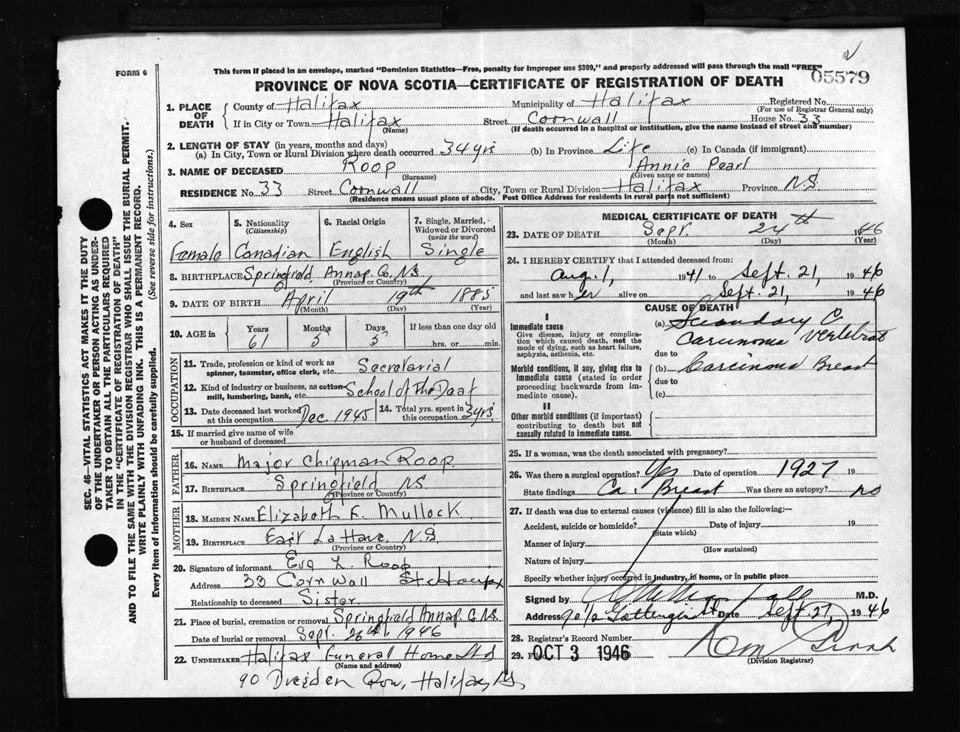 This form if placed in an envelope, marked "Dominion Statistics—Free, penalty for improper use $300," and properly addressed will pass through the mail "FREE"
FORM 6
05579
PROVINCE OF NOVA SCOTIA—CERTIFICATE OF REGISTRATION OF DEATH
SEC. 46—VITAL STATISTICS ACT MAKES IT THE DUTY
OF THE UNDERTAKER OR PERSON ACTING AS UNDER-
TAKER TO OBTAIN ALL THE PARTICULARS REQUIRED
IN THE "CERTIFICATE OF REGISTRATION OF DEATH"
AND TO FILE THE SAME WITH THE DIVISION REGISTRAR WHO SHALL ISSUE THE BURIAL PERMIT.
WRITE PLAINLY WITH UNFADING INK. THIS IS A PERMANENT RECORD.
Every item of Information should be carefully supplied. (See reverse side for instructions.)
1. PLACE OF DEATH County of Halifax Municipality of Halifax Registered No.
(For use of Registrar General only)
If in City or Town Halifax Street Cornwall House No. 33
(Name) (If death occurred in a hospital or institution, give the name instead of street and number)
2. LENGTH OF STAY (in years, months and days)
(a) In City, Town or Rural Division where death occurred 34 yrs (b) In Province Life (c) In Canada (if immigrant)
3. NAME OF DECEASED Roop Annie Pearl
(Surname) (Given name or names)
RESIDENCE No. 33 Street Cornwall City, Town or Rural Division Halifax Province N.S.
(Residence means usual place of abode. Post Office Address for residents in rural parts not sufficient)
4. Sex 5. Nationality (Citizenship) 6. Racial Origin 7. Single, Married, Widowed or Divorced (write the word)
Female Canadian English Single
8. BIRTHPLACE Springfield Annap. Co. N.S.
(Province or Country)
9. DATE OF BIRTH April 19th 1885
(Month) (Day) (Year)
10. AGE in Years Months Days If less than one day old
61 5 5 hrs. or min.
OCCUPATION
11. Trade, profession or kind of work as spinner, teamster, office clerk, etc. Secretarial
12. Kind of industry or business, as cotton-mill, lumbering, bank, etc. School of the Deaf
13. Date deceased last worked at this occupation Dec. 1945 14. Total yrs. spent in this occupation 34 yrs
15. If married give name of wife or husband of deceased
FATHER
16. NAME Major Chipman Roop
17. BIRTHPLACE Springfield N.S.
(Province or Country)
MOTHER
18. MAIDEN NAME Elizabeth F. Mullock
19. BIRTHPLACE East LaHave N.S.
(Province or Country)
20. Signature of informant Eva L. Roop
Address 33 Cornwall St Halifax
Relationship to deceased Sister
21. Place of burial, cremation or removal Springfield Annap. Co. N.S.
Date of burial or removal Sept. 26th 1946
22. UNDERTAKER Halifax Funeral Home Ltd
(Name and address)
90 Dresden Row, Halifax, N.S.
MEDICAL CERTIFICATE OF DEATH
23. DATE OF DEATH Sept. 24th 1946
(Month) (Day) (Year)
24. I HEREBY CERTIFY that I attended deceased from:
Aug. 1, 1941 to Sept. 21, 1946
and last saw her alive on Sept. 21, 1946
CAUSE OF DEATH
I
Immediate cause
Give disease, injury or complication which caused death, not the mode of dying, such as heart failure, asphyxia, asthenia, etc.
(a) Secondary Carcinoma Vertebrae
due to
Morbid conditions, if any, giving rise to immediate cause (stated in order proceeding backwards from immediate cause).
(b) Carcinoma Breast
due to
(c)
II
Other morbid conditions (if important) contributing to death but not causally related to immediate cause.
25. If a woman, was the death associated with pregnancy?
26. Was there a surgical operation? Yes Date of operation 1927 19
State findings Ca. Breast Was there an autopsy? no
27. If death was due to external causes (violence) fill in also the following:—
Accident, suicide or homicide? Date of injury 19
(State which)
Manner of injury
(How sustained)
Nature of injury
Specify whether injury occurred in industry, in home, or in public place
Signed by M.D.
Address Gottingen St Date Sept. 27, 1946
28. Registrar's Record Number
29. OCT 3 1946
(Division Registrar)